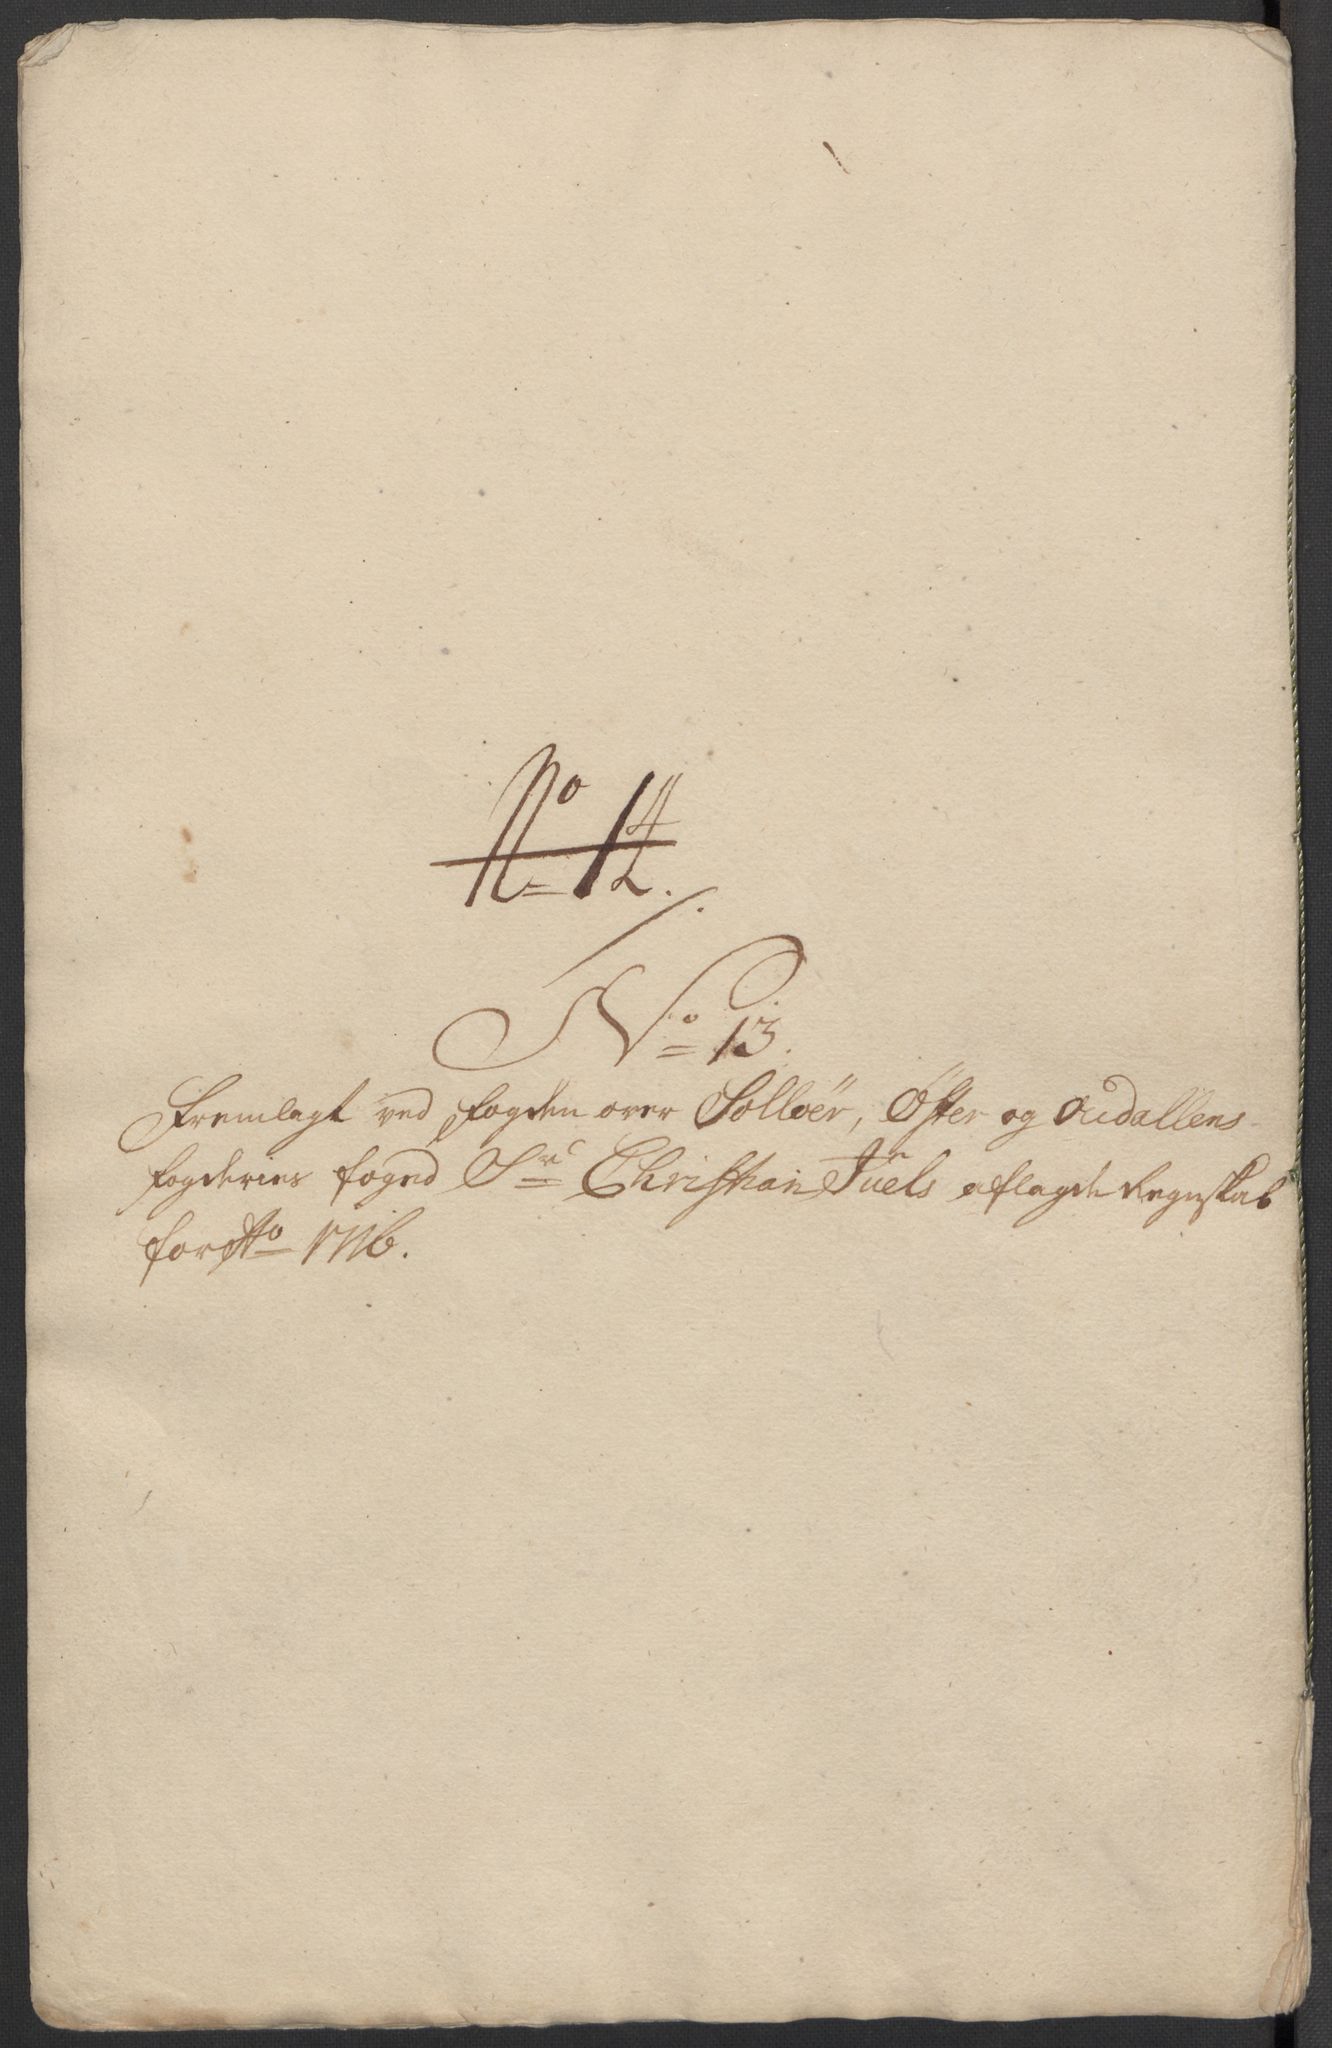 No 14.
No 13.
Fremlagt ved fogden over Solloër, Öster og Oudallens
fogderies foged Sr Christian Juels aflagde Regnskab
for Ao 1716.